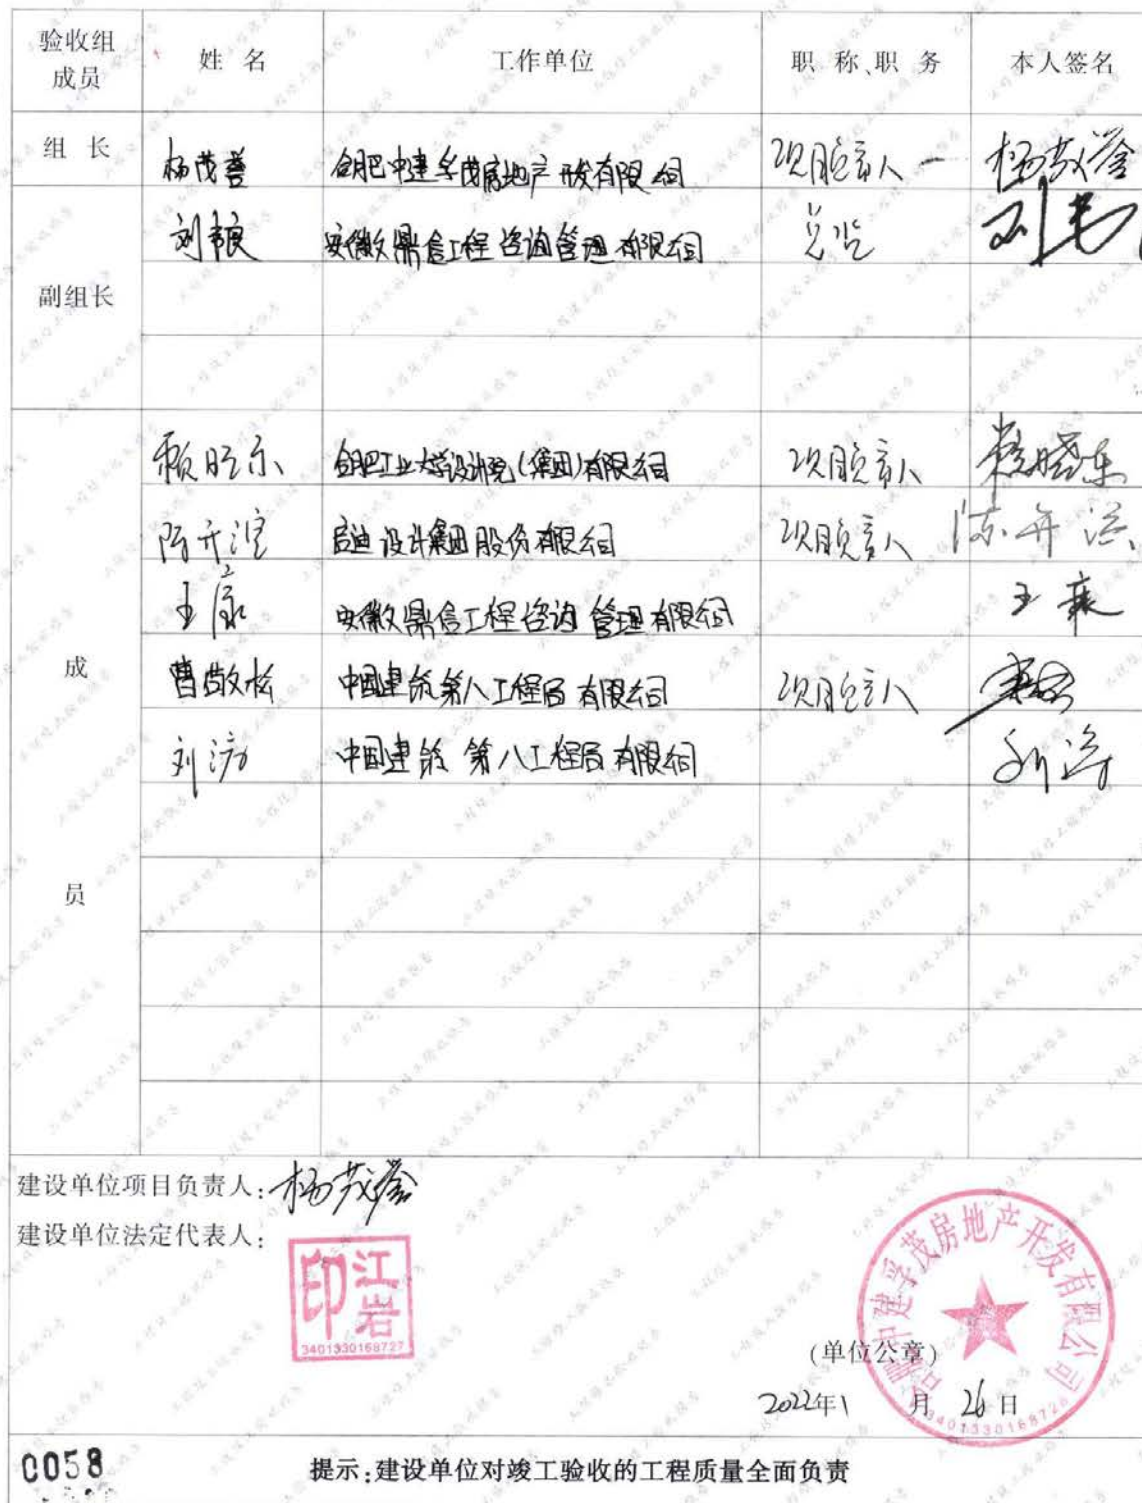 验收组成员 姓 名 工作单位 职 称、职 务 本人签名
组 长 杨茂誉 合肥中建孚茂房地产开发有限公司 项目负责人 杨茂誉
刘韧 安徽鼎信工程咨询管理有限公司 总监
副组长
赖晓东 合肥工业大学设计院(集团)有限公司 项目负责人 赖晓东
陈开滢 启迪设计集团股份有限公司 项目负责人
王康 安徽鼎信工程咨询管理有限公司 王康
成 曹敬松 中国建筑第八工程局有限公司 项目负责人
刘涛 中国建筑第八工程局有限公司 刘涛
员
建设单位项目负责人:杨茂誉
建设单位法定代表人:
江岩印
3401330168727
合肥中建孚茂房地产开发有限公司
(单位公章)
2022年1月26日
0058
提示:建设单位对竣工验收的工程质量全面负责